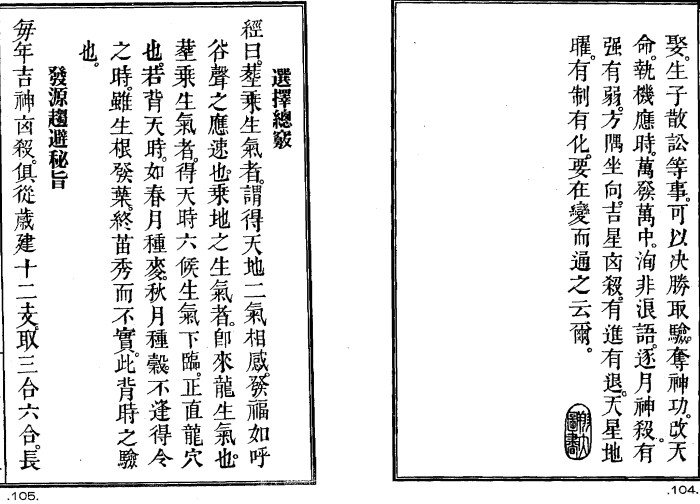 娶。生子散訟等事。可以决勝取驗。奪神功。改天
命。執機應時。萬發萬中。洵非浪語。逐月神殺。有
强有弱。方隅坐向。吉星凶殺。有進有退。天星地
曜。有制有化。要在變而通之云爾。
.104.
選擇總竅
經曰。塟乘生氣者。謂得天地二氣相感。發福如呼
谷聲之應速也。乘地之生氣者。卽來龍生氣也。
塟乘生氣者。得天時六候生氣下臨。正直龍穴
也。若背天時。如春月種麥。秋月種穀。不逢得令
之時。雖生根發葉。終苗秀而不實。此背時之驗
也。
發源趨避秘旨
每年吉神凶殺。俱從歲建十二支。取三合六合。長
.105.